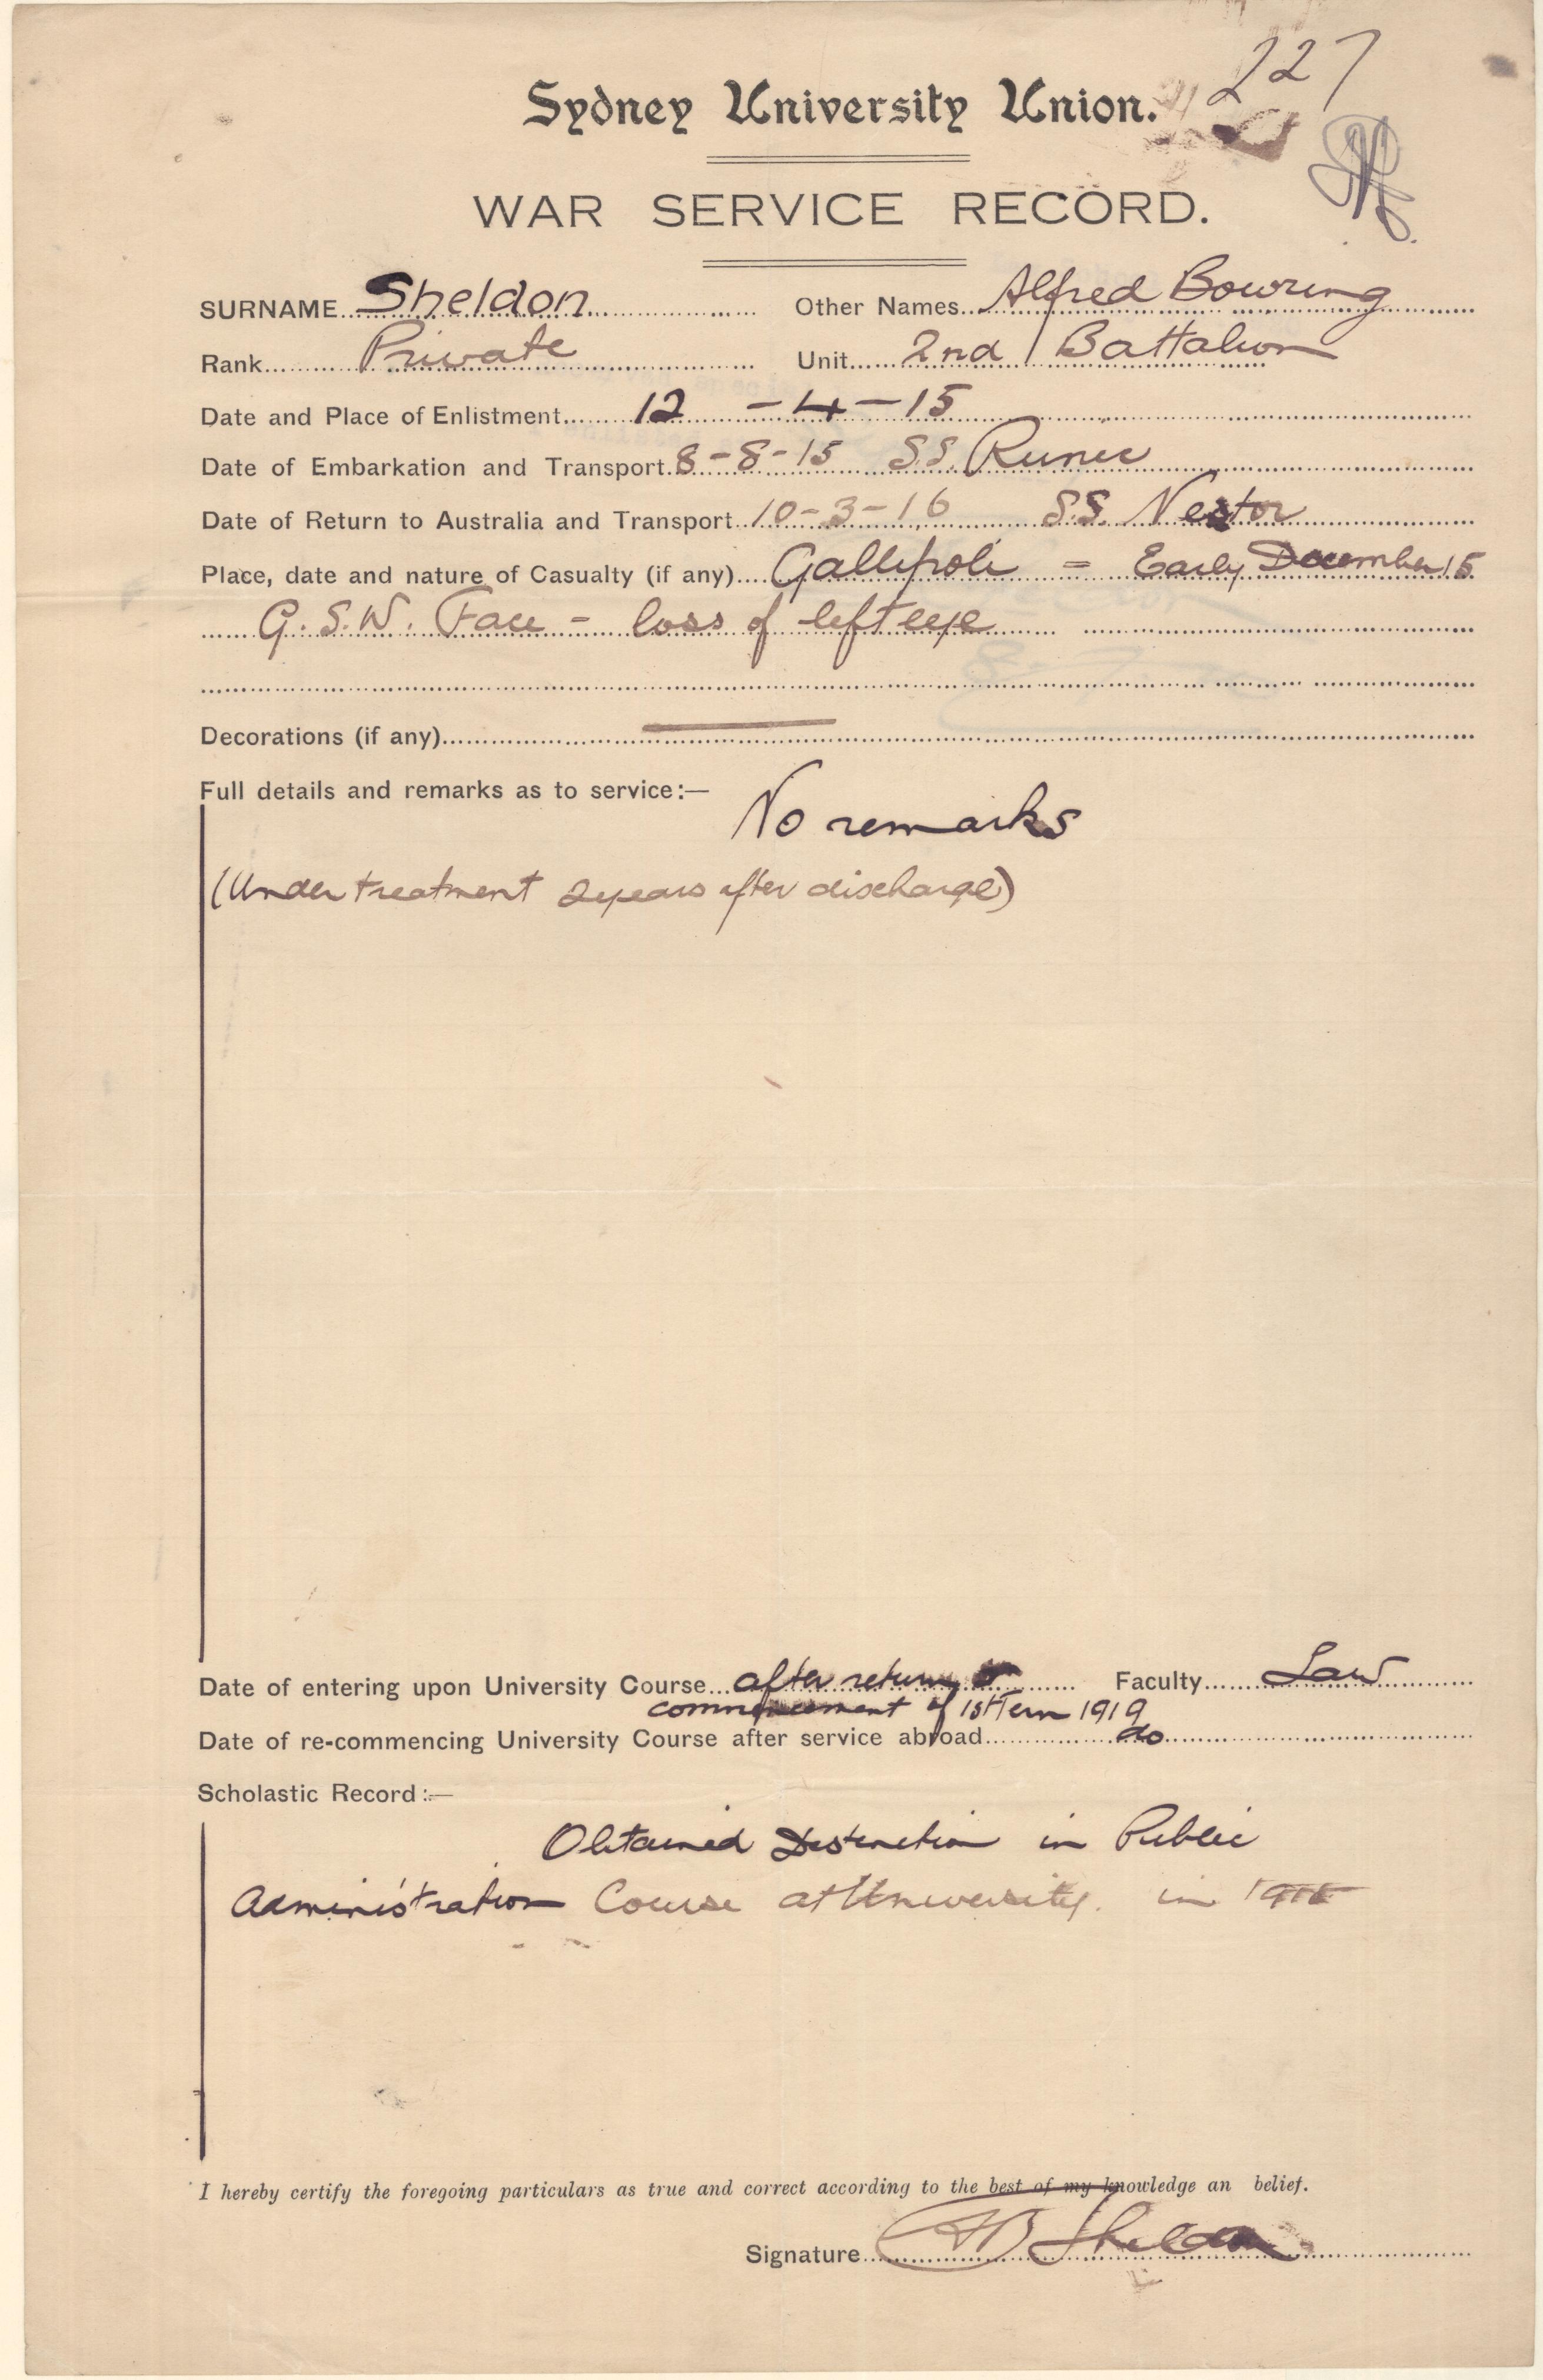 227
Sydney University Union.
WAR SERVICE RECORD.
SURNAME Sheldon Other Names Alfred Bowring
Rank Private Unit 2nd Battalion
Date and Place of Enlistment 12 - 4 - 15
Date of Embarkation and Transport 8-8-15 S.S. Runic
Date of Return to Australia and Transport 10-3-16 S.S. Nestor
Place, date and nature of Casualty (if any) Gallipoli = Early December 15
G.S.W. Face - loss of left eye
Decorations (if any)
Full details and remarks as to service:—
No remarks
(Under treatment 2 years after discharge)
Date of entering upon University Course after return Faculty Law
commencement of 1st Term 1919
Date of re-commencing University Course after service abroad do
Scholastic Record:—
Obtained Distinction in Public
Administration Course at University. in
I hereby certify the foregoing particulars as true and correct according to the best of my knowledge an belief.
Signature AB Sheldon